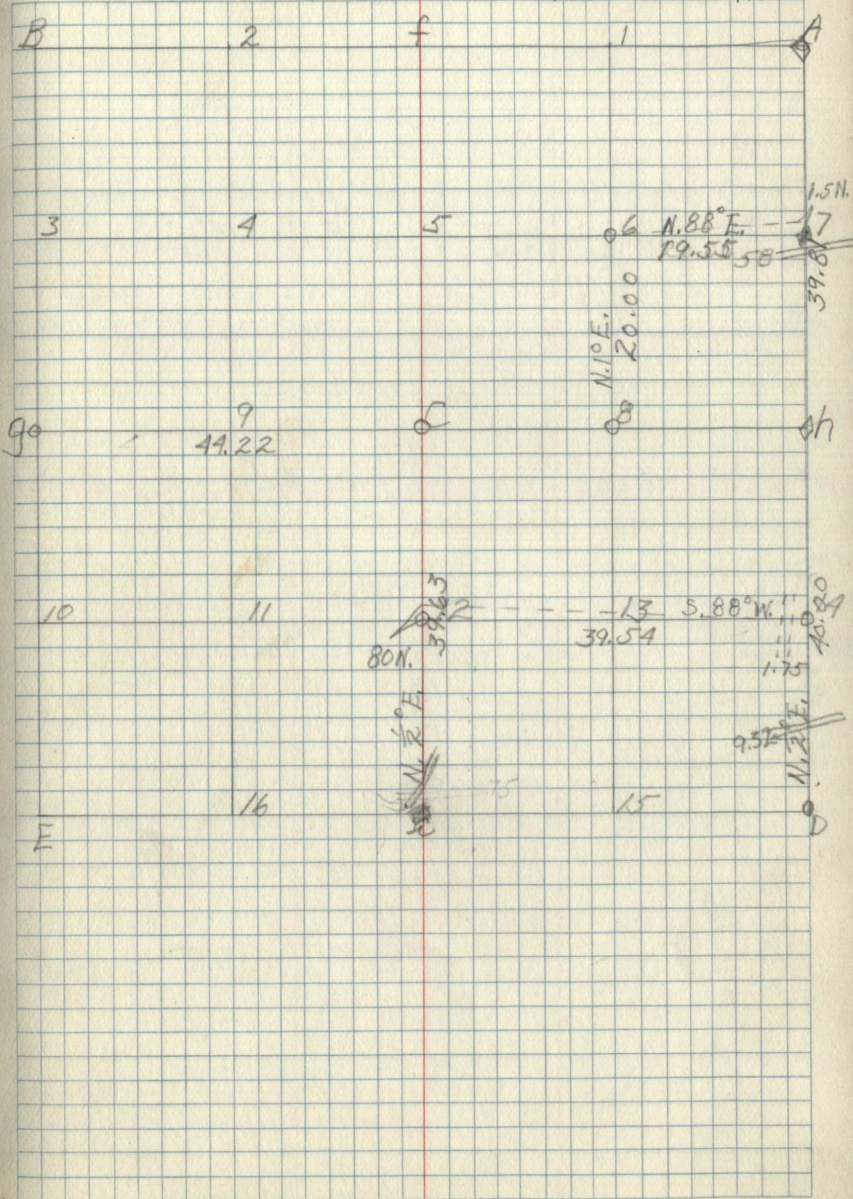 B 2 f 1 A
1.5N.
3 4 5 6 N.88°E. 7
19.55 58
39.87
N.1°E.
20.00
g 9 C 8 h
44.22
10 11 12 13 S.88°W. 14
39.63
39.54
40.20
80N.
1.75
N.½°E.
9.32
N.2°E.
75
E 16 15 D